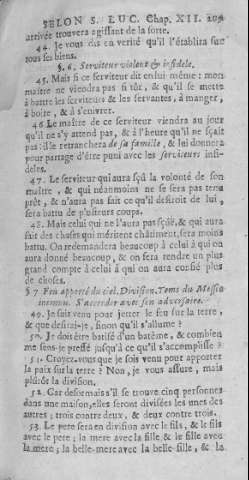 SELON S. LUC. Chap. XII.
arrivée trouvera agissant de la sorte.
44. Je vous dis en verité qu'il l'établira sur
tous ses biens.
§. 6. Serviteur violent & infidele.
45. Mais si ce serviteur dit en lui même : mon
maître ne viendra pas si tôt, & qu'il se mette
à battre les serviteurs & les servantes, à manger,
à boire, & à s'enivrer.
46 Le maître de ce serviteur viendra au jour
qu'il ne s'y attend pas, & à l'heure qu'il ne sçait
pas : il le retranchera de sa famille, & lui donnera
pour partage d'être puni avec les serviteurs infi-
deles.
47. Le serviteur qui aura sçû la volonté de son
maître, & qui néanmoins ne se sera pas tenu
prêt, & n'aura pas fait ce qu'il desiroit de lui,
sera battu de plusieurs coups.
48. Mais celui qui ne l'aura pas sçûë, & qui aura
fait des choses qui méritent châtiment, sera moins
battu. On redemandera beaucoup à celui à qui on
aura donné beaucoup, & on sera rendre un plus
grand compte à celui à qui on aura confié plus
de choses.
§ 7 Feu apporté du ciel. Division. Tems du Messie
inconnu. S'accorder avec son adversaire.
49. Je suis venu pour jetter le feu sur la terre,
& que desirai-je, sinon qu'il s'allume ?
50. Je dois être batisé d'un batême, & combien
me sens-je pressé jusqu'à ce qu'il s'accomplisse ?
51. Croyez-vous que je sois venu pour apporter
la paix sur la terre ? Non, je vous assure, mais
plûtôt la division.
52. Car desormais s'il se trouve cinq personnes
dans une maison, elles seront divisées les unes des
autres ; trois contre deux, & deux contre trois.
53. Le pere sera en division avec le fils, & le fils
avec le pere ; la mere avec la fille, & la fille avec
la mere ; la belle-mere avec la belle-fille, & la